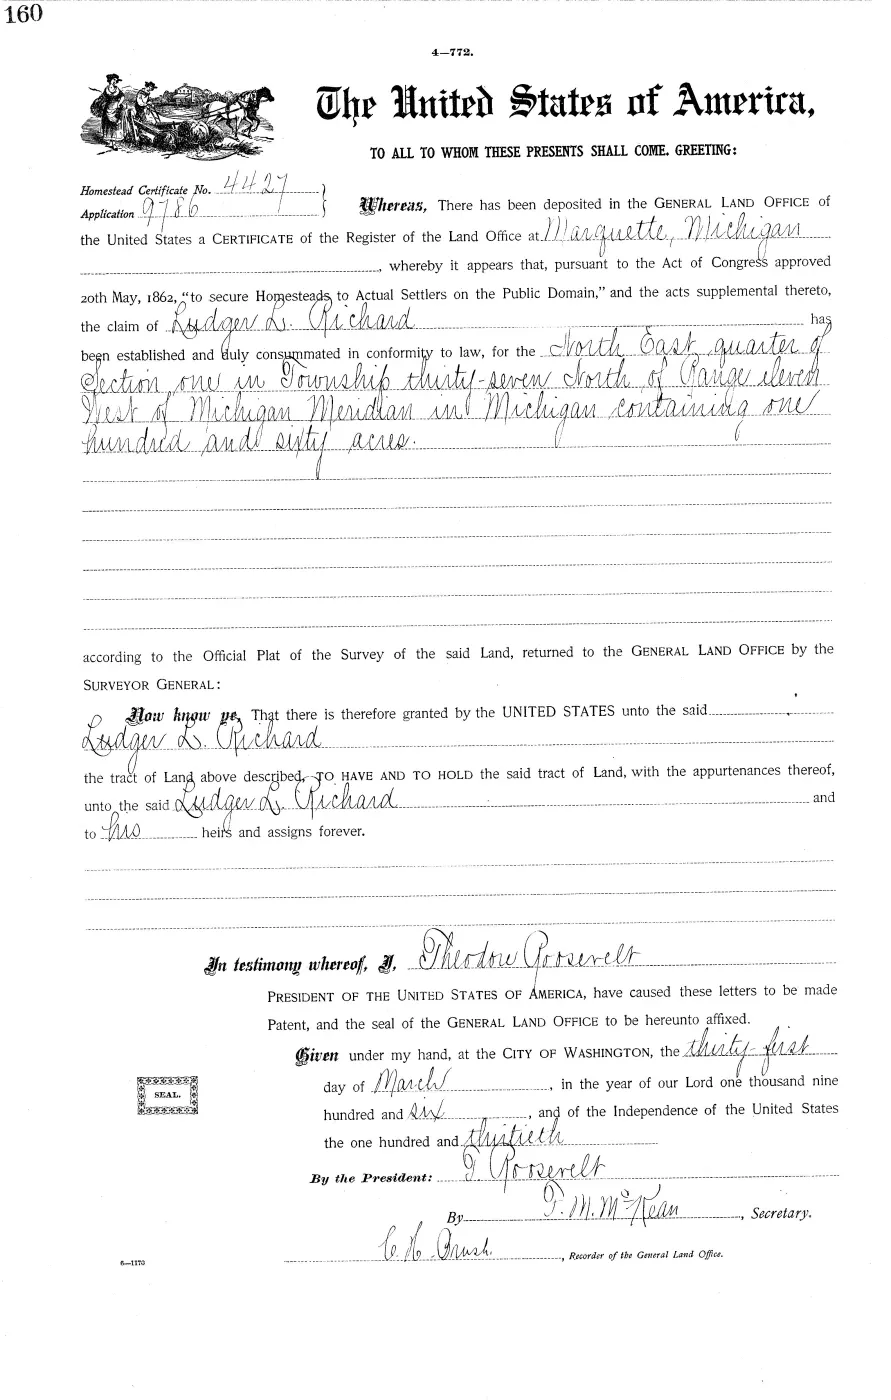 160
4—772.
The United States of America,
TO ALL TO WHOM THESE PRESENTS SHALL COME, GREETING:
Homestead Certificate No. 4427
Application 9786
Whereas, There has been deposited in the GENERAL LAND OFFICE of
the United States a CERTIFICATE of the Register of the Land Office at Marquette, Michigan
, whereby it appears that, pursuant to the Act of Congress approved
20th May, 1862, "to secure Homesteads to Actual Settlers on the Public Domain," and the acts supplemental thereto,
the claim of Ludger L. Richard has
been established and duly consummated in conformity to law, for the North East quarter of
Section one in Township thirty-seven North of Range eleven
West of Michigan Meridian in Michigan containing one
hundred and sixty acres.
according to the Official Plat of the Survey of the said Land, returned to the GENERAL LAND OFFICE by the
SURVEYOR GENERAL:
Now know ye, That there is therefore granted by the UNITED STATES unto the said
Ludger L. Richard
the tract of Land above described, TO HAVE AND TO HOLD the said tract of Land, with the appurtenances thereof,
unto the said Ludger L. Richard and
to his heirs and assigns forever.
In testimony whereof, I, Theodore Roosevelt
PRESIDENT OF THE UNITED STATES OF AMERICA, have caused these letters to be made
Patent, and the seal of the GENERAL LAND OFFICE to be hereunto affixed.
Given under my hand, at the CITY OF WASHINGTON, the thirty-first
day of March, in the year of our Lord one thousand nine
hundred and six, and of the Independence of the United States
the one hundred and thirtieth
SEAL.
By the President: T. Roosevelt
By F. M. McKean, Secretary.
C. H. Brush, Recorder of the General Land Office.
6—1170